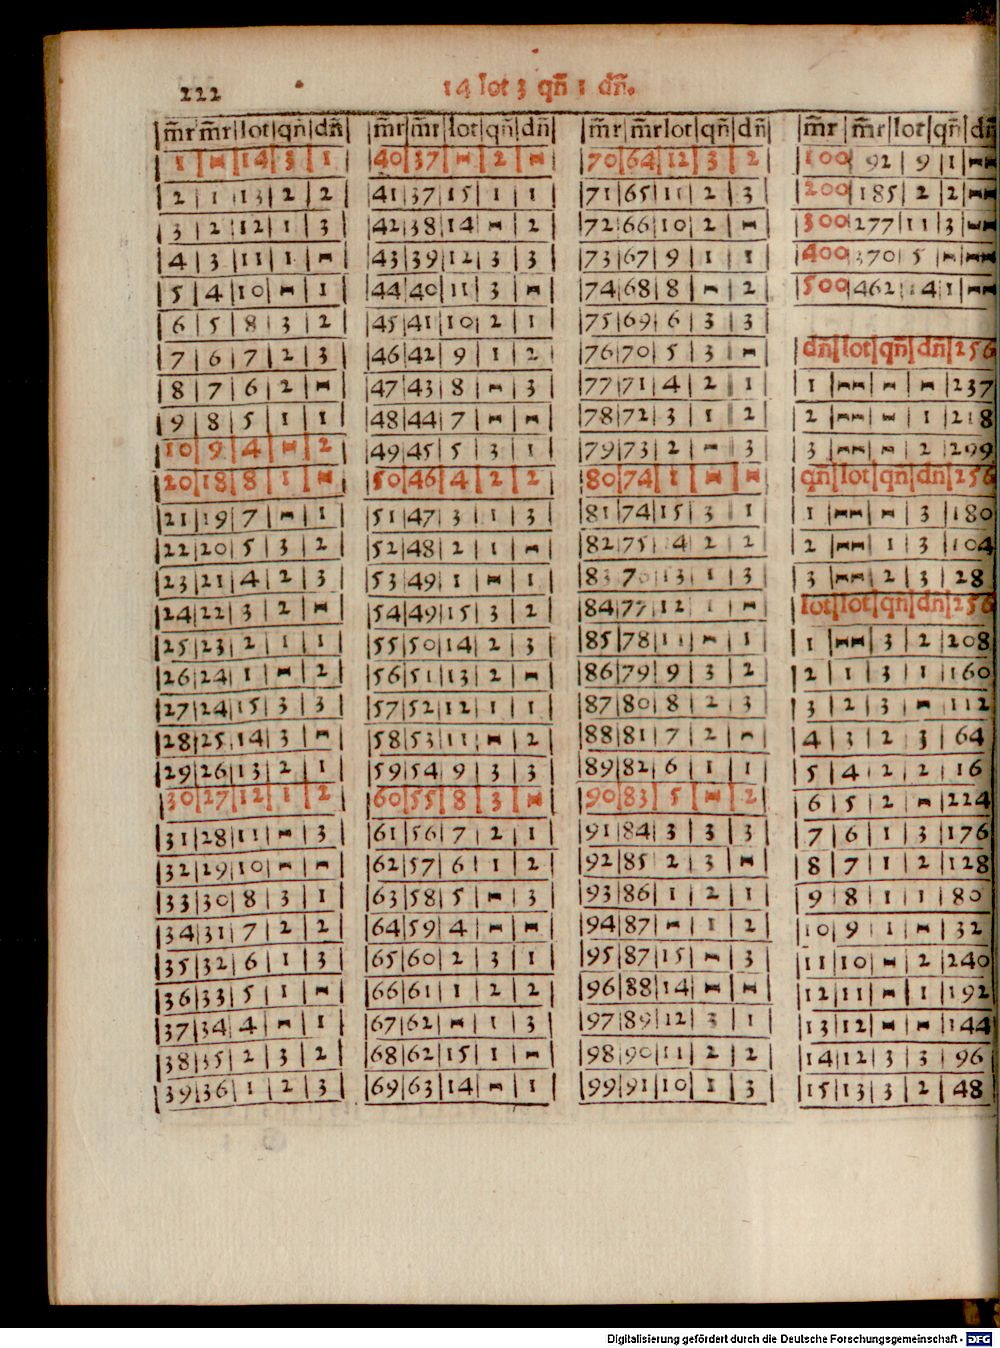 222
14 lot 3 qn̄ 1 dn̄.
m̄r m̄r lot qn̄ dn̄
1 – 14 3 1
2 1 13 2 2
3 2 12 1 3
4 3 11 1 –
5 4 10 – 1
6 5 8 3 2
7 6 7 2 3
8 7 6 2 –
9 8 5 1 1
10 9 4 – 2
20 18 8 1 –
21 19 7 – 1
22 20 5 3 2
23 21 4 2 3
24 22 3 2 –
25 23 2 1 1
26 24 1 – 2
27 24 15 3 3
28 25 14 3 –
29 26 13 2 1
30 27 12 1 2
31 28 11 – 3
32 29 10 – –
33 30 8 3 1
34 31 7 2 2
35 32 6 1 3
36 33 5 1 –
37 34 4 – 1
38 35 2 3 2
39 36 1 2 3
m̄r m̄r lot qn̄ dn̄
40 37 – 2 –
41 37 15 1 1
42 38 14 – 2
43 39 12 3 3
44 40 11 3 –
45 41 10 2 1
46 42 9 1 2
47 43 8 – 3
48 44 7 – –
49 45 5 3 1
50 46 4 2 2
51 47 3 1 3
52 48 2 1 –
53 49 1 – 1
54 49 15 3 2
55 50 14 2 3
56 51 13 2 –
57 52 12 1 1
58 53 11 – 2
59 54 9 3 3
60 55 8 3 –
61 56 7 2 1
62 57 6 1 2
63 58 5 – 3
64 59 4 – –
65 60 2 3 1
66 61 1 2 2
67 62 – 1 3
68 62 15 1 –
69 63 14 – 1
m̄r m̄r lot qn̄ dn̄
70 64 12 3 2
71 65 11 2 3
72 66 10 2 –
73 67 9 1 1
74 68 8 – 2
75 69 6 3 3
76 70 5 3 –
77 71 4 2 1
78 72 3 1 2
79 73 2 – 3
80 74 1 – –
81 74 15 3 1
82 75 14 2 2
83 76 13 1 3
84 77 12 1 –
85 78 11 – 1
86 79 9 3 2
87 80 8 2 3
88 81 7 2 –
89 82 6 1 1
90 83 5 – 2
91 84 3 3 3
92 85 2 3 –
93 86 1 2 1
94 87 – 1 2
95 87 15 – 3
96 88 14 – –
97 89 12 3 1
98 90 11 2 2
99 91 10 1 3
m̄r m̄r lot qn̄ dn̄
100 92 9 1 –
200 185 2 2 –
300 277 11 3 –
400 370 5 – –
500 462 14 1 –
dn̄ lot qn̄ dn̄ 256
1 – – – 237
2 – – 1 218
3 – – 2 299
qn̄ lot qn̄ dn̄ 256
1 – – 3 180
2 – 1 3 104
3 – 2 3 28
lot lot qn̄ dn̄ 256
1 – 3 2 208
2 1 3 1 160
3 2 3 – 112
4 3 2 3 64
5 4 2 2 16
6 5 2 – 224
7 6 1 3 176
8 7 1 2 128
9 8 1 1 80
10 9 1 – 32
11 10 – 2 240
12 11 – 1 192
13 12 – – 144
14 12 3 3 96
15 13 3 2 48
Digitalisierung gefördert durch die Deutsche Forschungsgemeinschaft - DFG